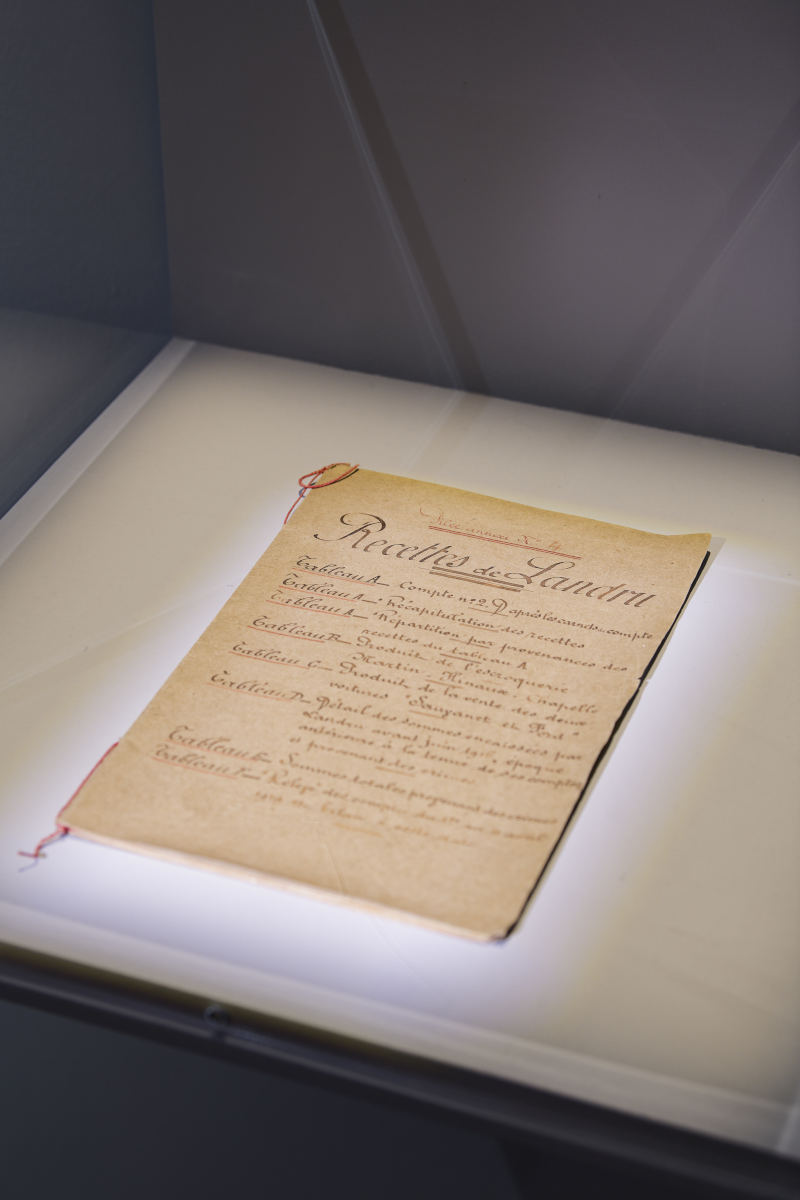 Pièce annexe N° 4
Recettes de Landru
Tableau A — Compte n° 2. D'après les carnets-compte
Tableau A — "Récapitulation des recettes
Tableau A — "Répartition par provenances des
recettes du tableau A
Tableau B — Produit de l'escroquerie
Martin - Minaux - Chapelle
Tableau C — Produit de la vente des deux
voitures "Sauzanet et Port"
Tableau D — Détail des sommes encaissées par
Landru avant Juin époque
antérieure à la tenue de ses comptes
et provenant des crimes
Tableau E — Sommes totales provenant des crimes
Tableau F — "Relevé" des